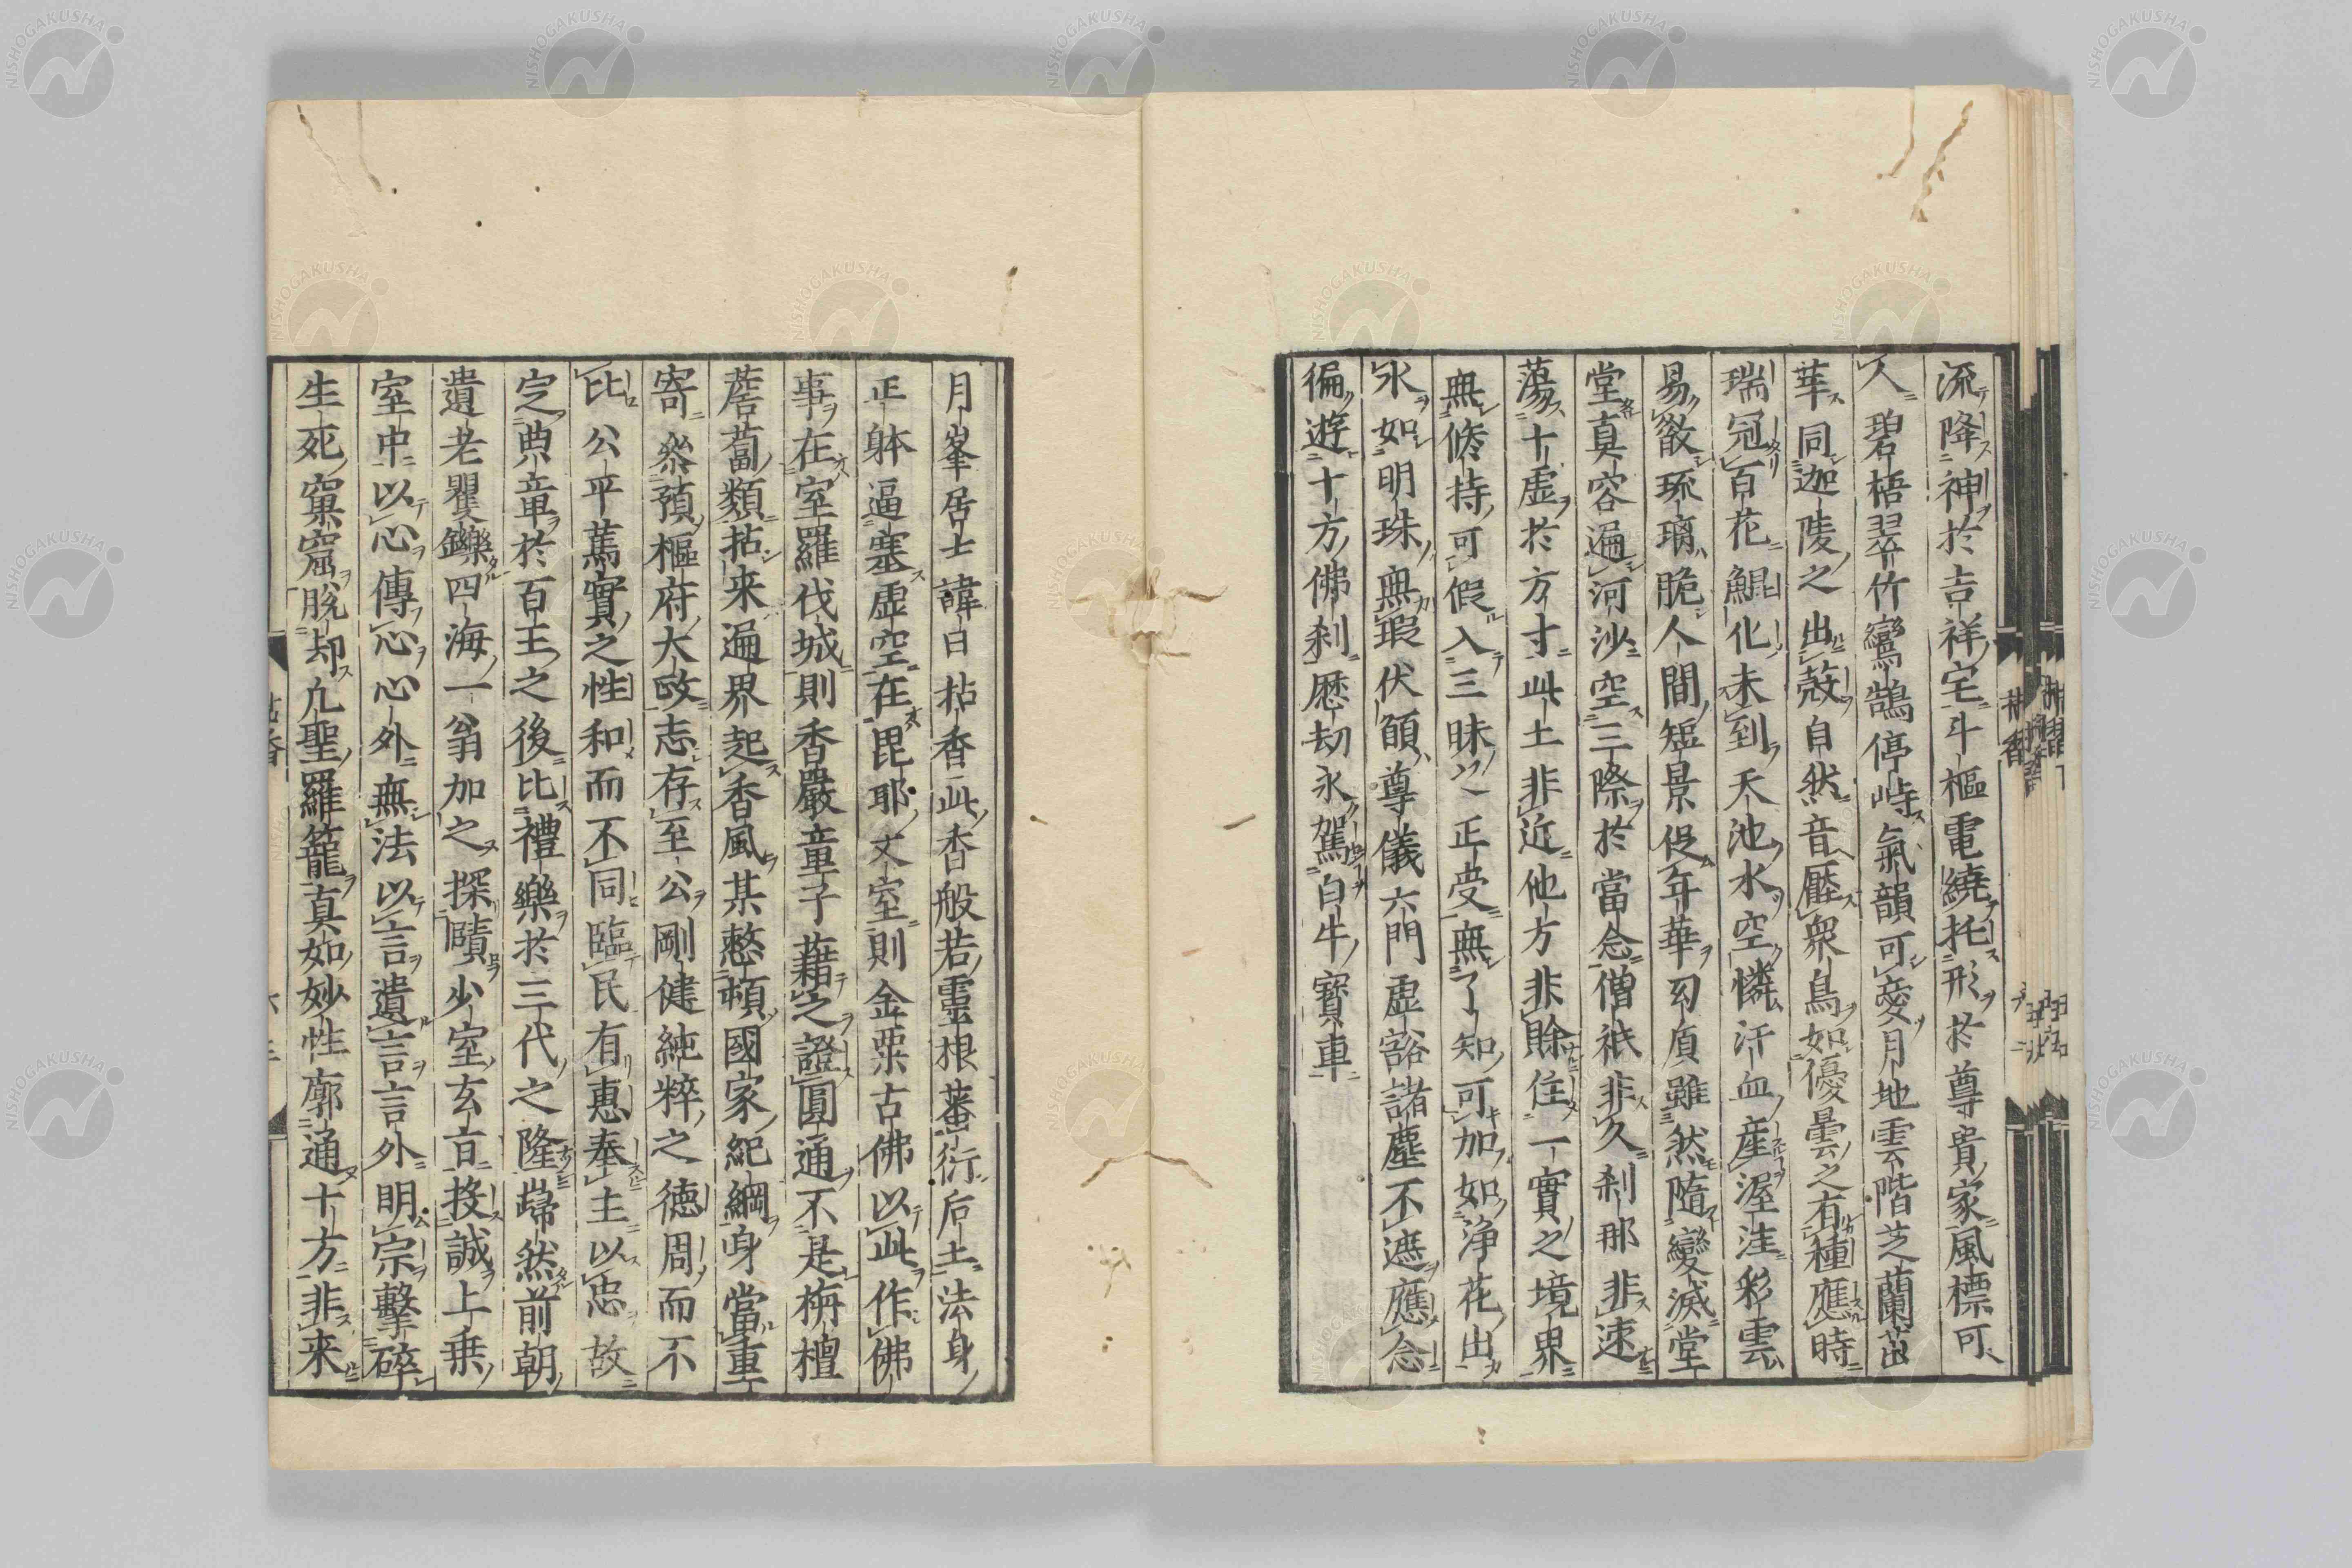 流降神於吉祥宅斗樞電繞托形於尊貴家風標可
人碧梧翠竹鸞鵠停峙氣韻可愛月地雲階芝蘭茁
華同迦陵之出殼自然音壓衆鳥如優曇之有種應時
瑞冠百花鯤化未到天池水空憐汗血産渥洼彩雲
易散琉璃脆人間短景促年華匃庾雖然隨變滅堂
堂真容遍河沙空三際於當念僧祇非久刹那非速
蕩十虚於方寸此土非近他方非賖住一實之境界
無修持可假入三昧之正受無了知可加如浄花出
水如明珠無瑕伏願尊儀六門虚豁諸塵不遮應念
徧遊十方佛刹歴劫永駕白牛寶車
月峯居士諱日拈香此香般若靈根蕃衍后土法身
正躰逼塞虚空在毘耶丈室則金粟古佛以此作佛
事在室羅伐城則香嚴童子藉之證圓通不是栴檀
薝蔔類拈来遍界起香風某慗頓國家紀綱身當重
寄叅預樞府大政志存至公剛健純粹之徳周而不
比公平篤實之性和而不同臨民有惠奉主以忠故
定典章於百王之後比禮樂於三代之隆巋然前朝
遺老矍鑠四海一翁加之探賾少室玄㫖投誠上乗
室中以心傳心心外無法以言遺言言外明宗擊碎
生死窠窟脱却凢聖羅籠真如妙性廓通十方非来
拈香